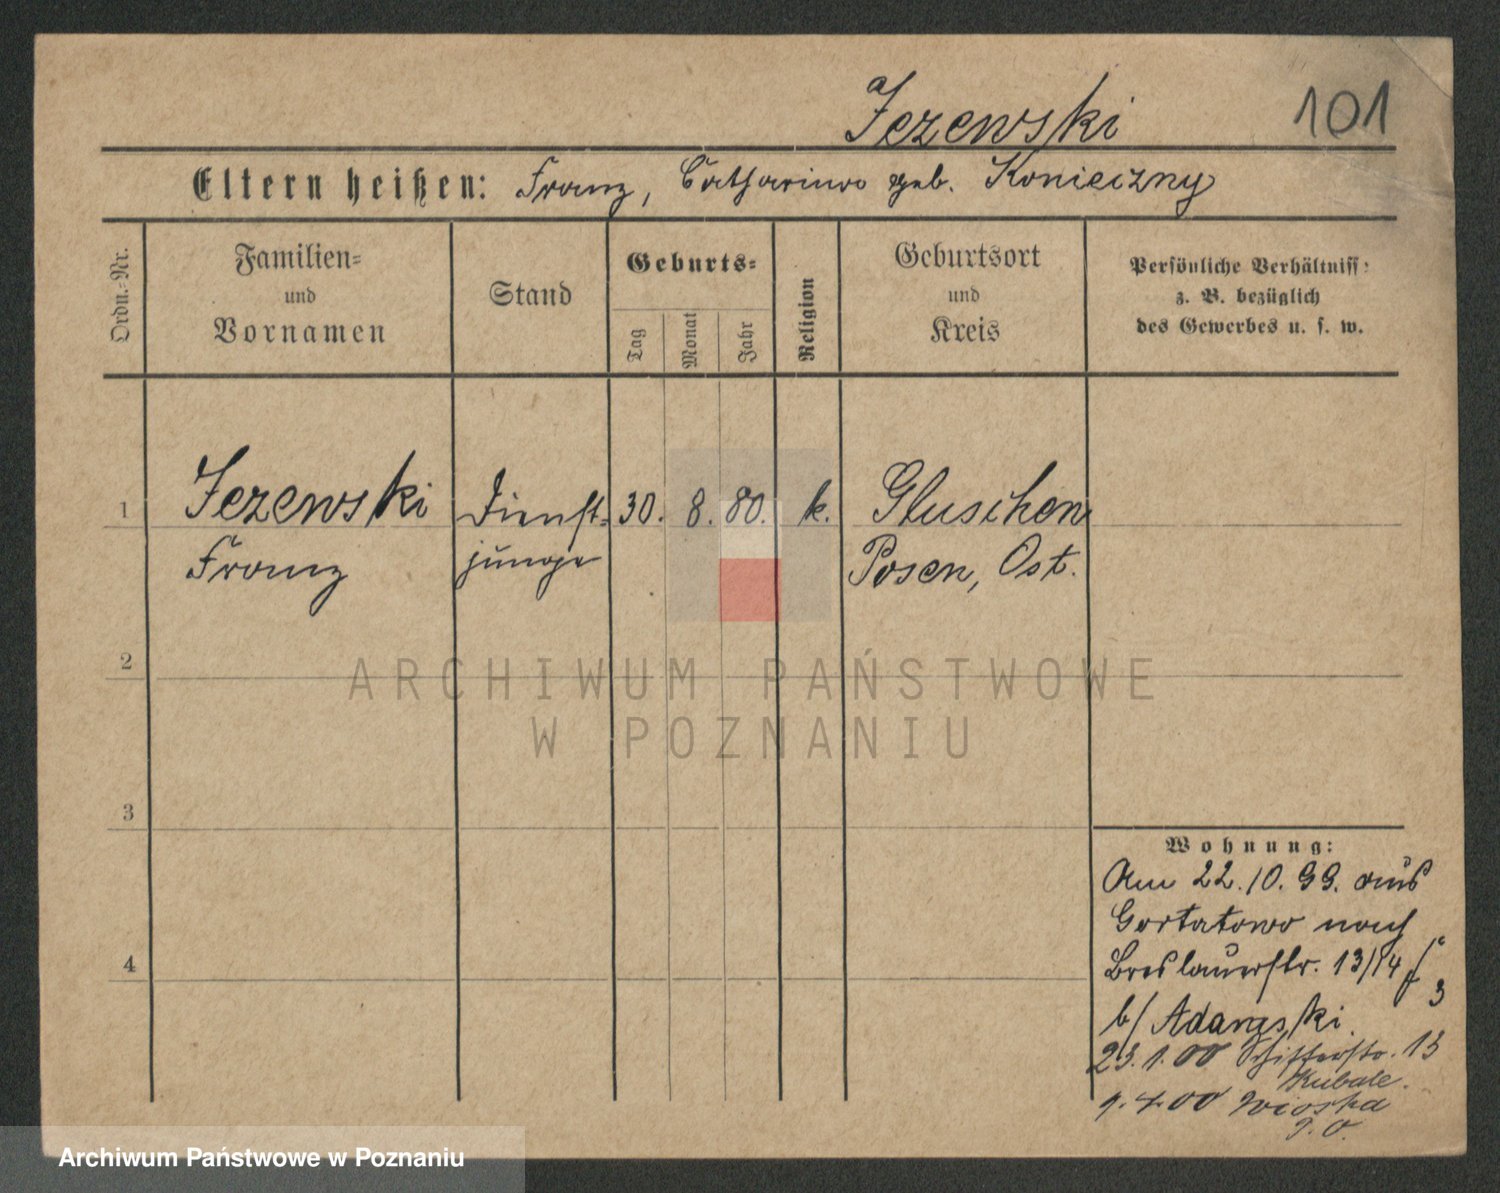 Jezewski
101
Eltern heißen: Franz, Catharina geb. Konieczny
Ordn.-Nr.
Familien-
und
Vornamen
Stand
Geburts-
Tag
Monat
Jahr
Religion
Geburtsort
und
Kreis
Persönliche Verhältniss:
z. B. bezüglich
des Gewerbes u. s. w.
1
Jezewski
Franz
Dienst-
junge
30. 8. 80.
k.
Gluschen
Posen, Ost.
2
3
4
Wohnung:
Am 22.10.99. aus
Gortatowo nach
Breslauerstr. 13/14
3
b/ Adamski.
23.1.00 Schifferstr. 13
Kubale.
9.4.00 Wioska
P.O.
ARCHIWUM PAŃSTWOWE
W POZNANIU
Archiwum Państwowe w Poznaniu